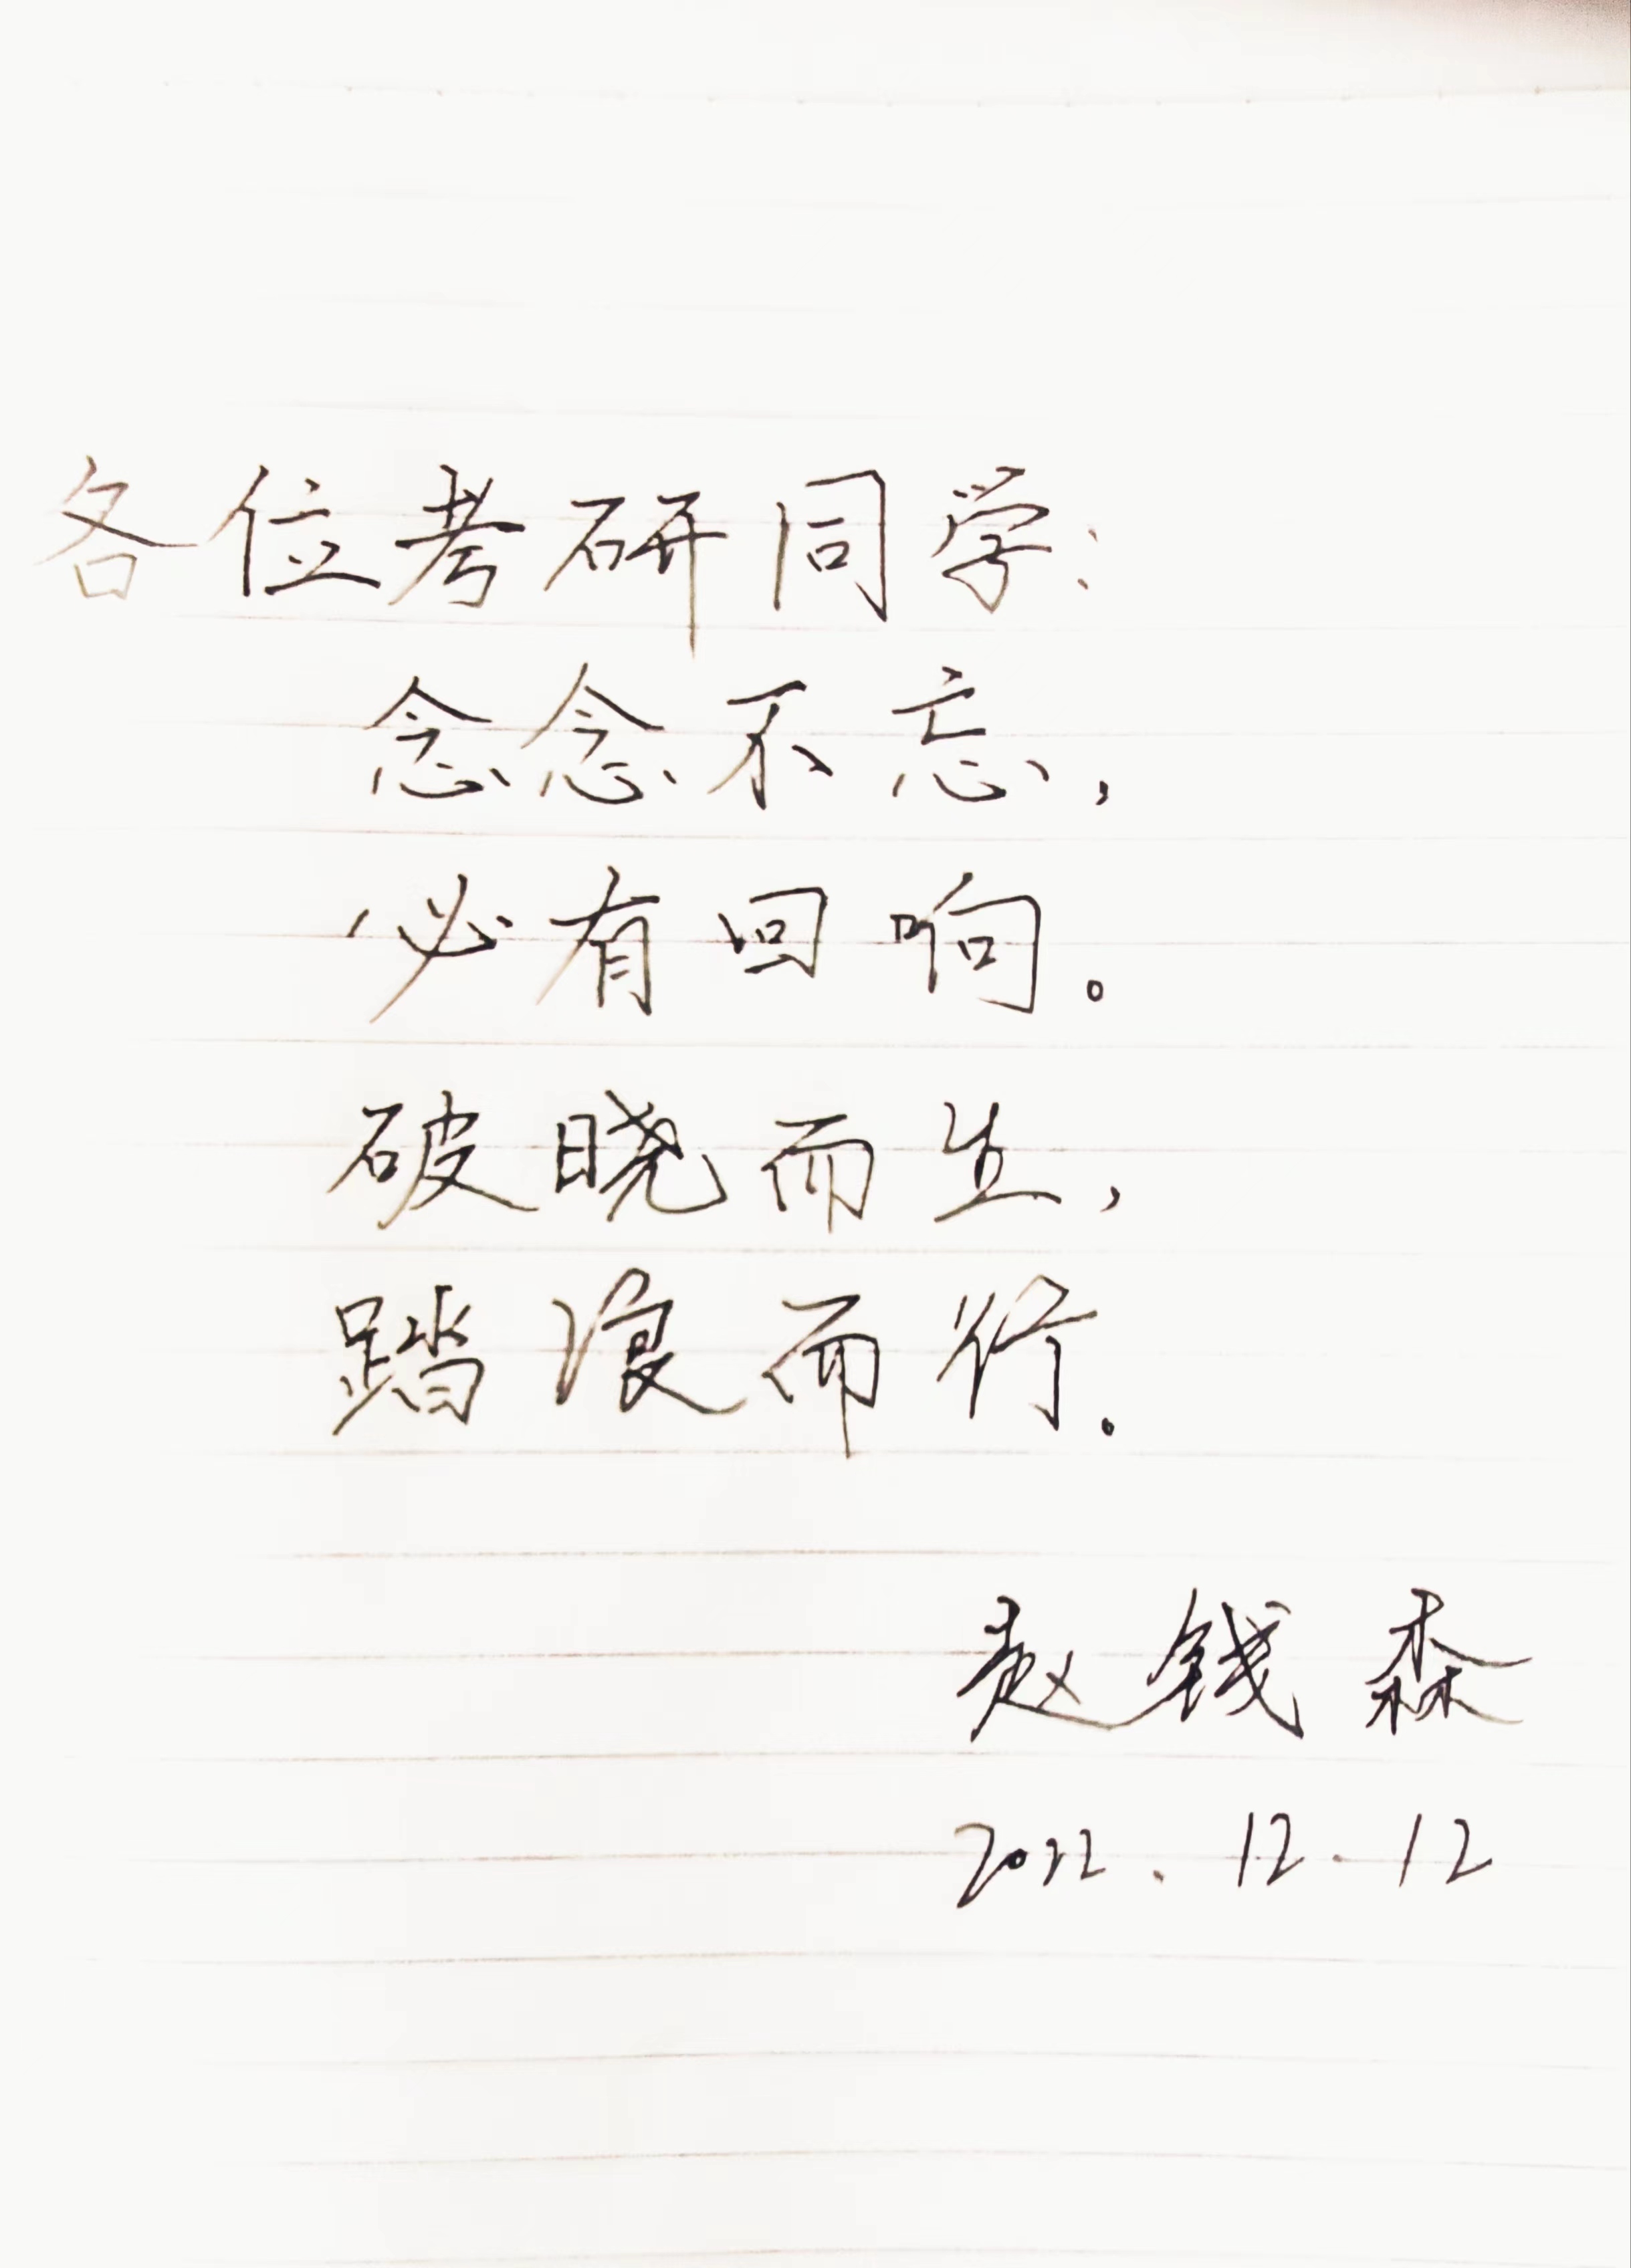 各位考研同学:
念念不忘,
必有回响。
破晓而生,
踏浪而行。
赵钱森
2022.12.12